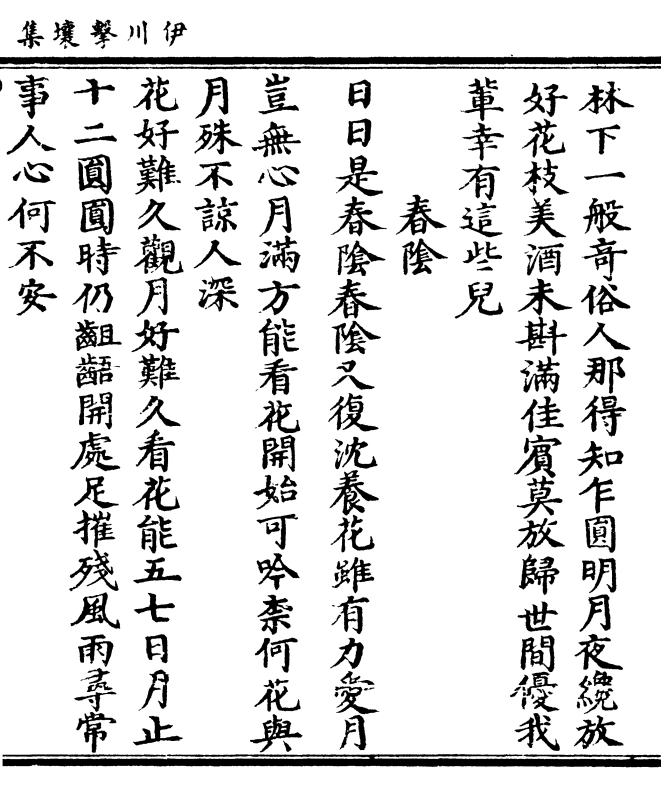 伊川擊壤集
林下一般奇俗人那得知乍圓明月夜纔放
好花枝美酒未斟滿佳賓莫放歸世間優我
輩幸有這些兒
春隂
日日是春隂春隂又復沈養花雖有力愛月
豈無心月滿方能看花開始可吟柰何花與
月殊不諒人深
花好難久觀月好難久看花能五七日月止
十二圓圓時仍齟齬開處足摧殘風雨尋常
事人心何不安